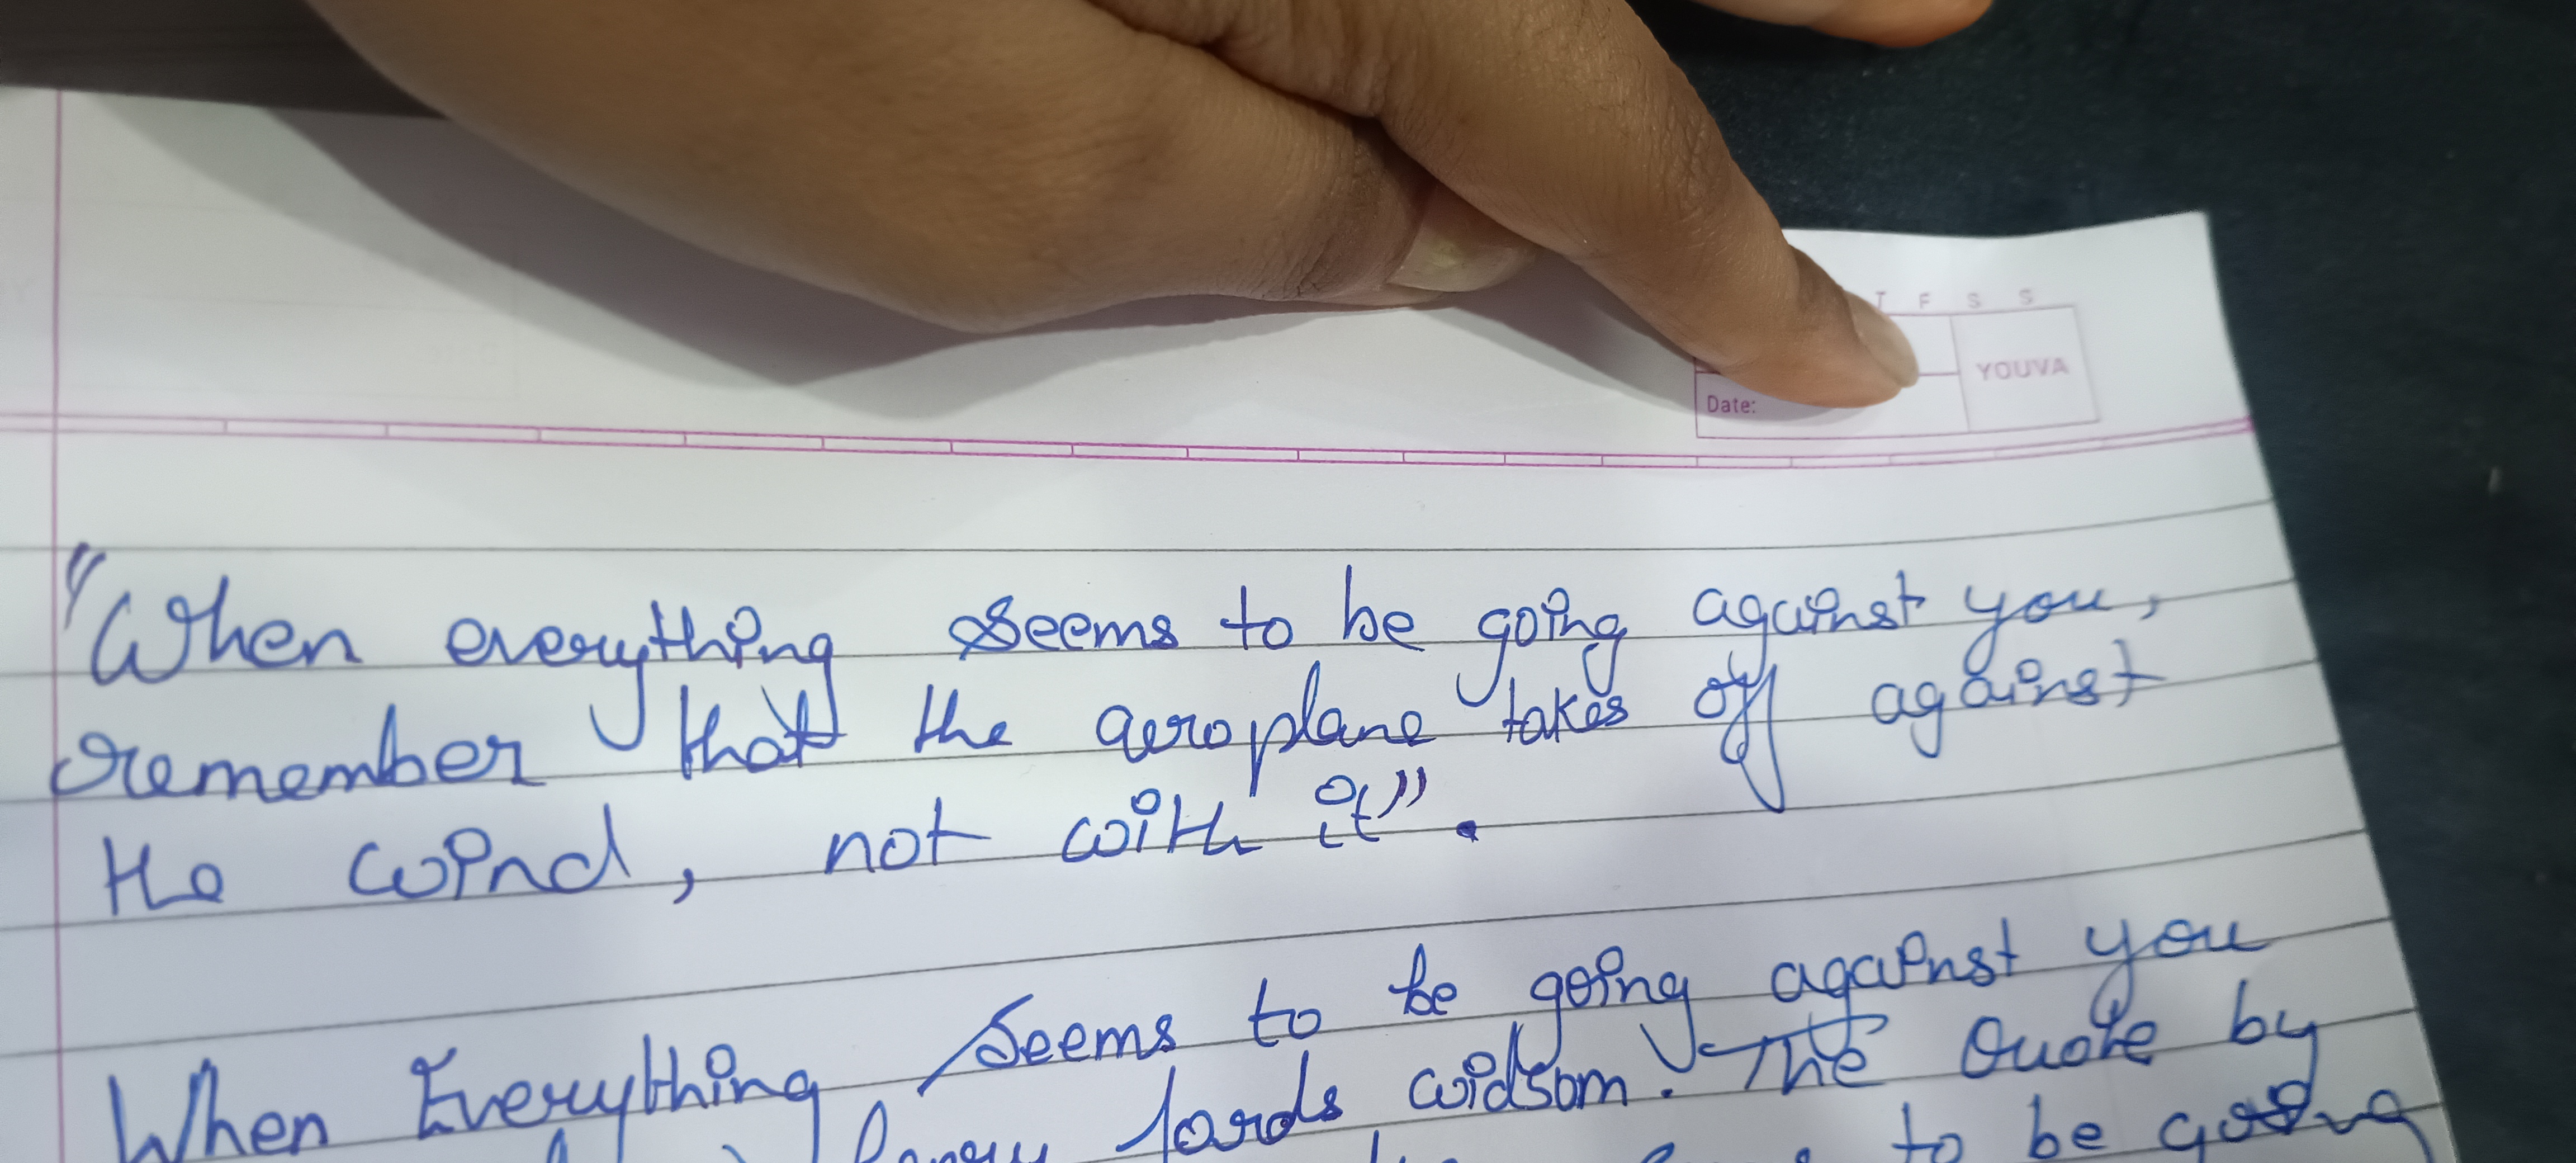 T F S S
YOUVA
Date:
"When everything seems to be going against you,
remember that the aeroplane takes off against
the wind, not with it".
When Everything seems to be going against you
fords widsom. The Quote by
to be going